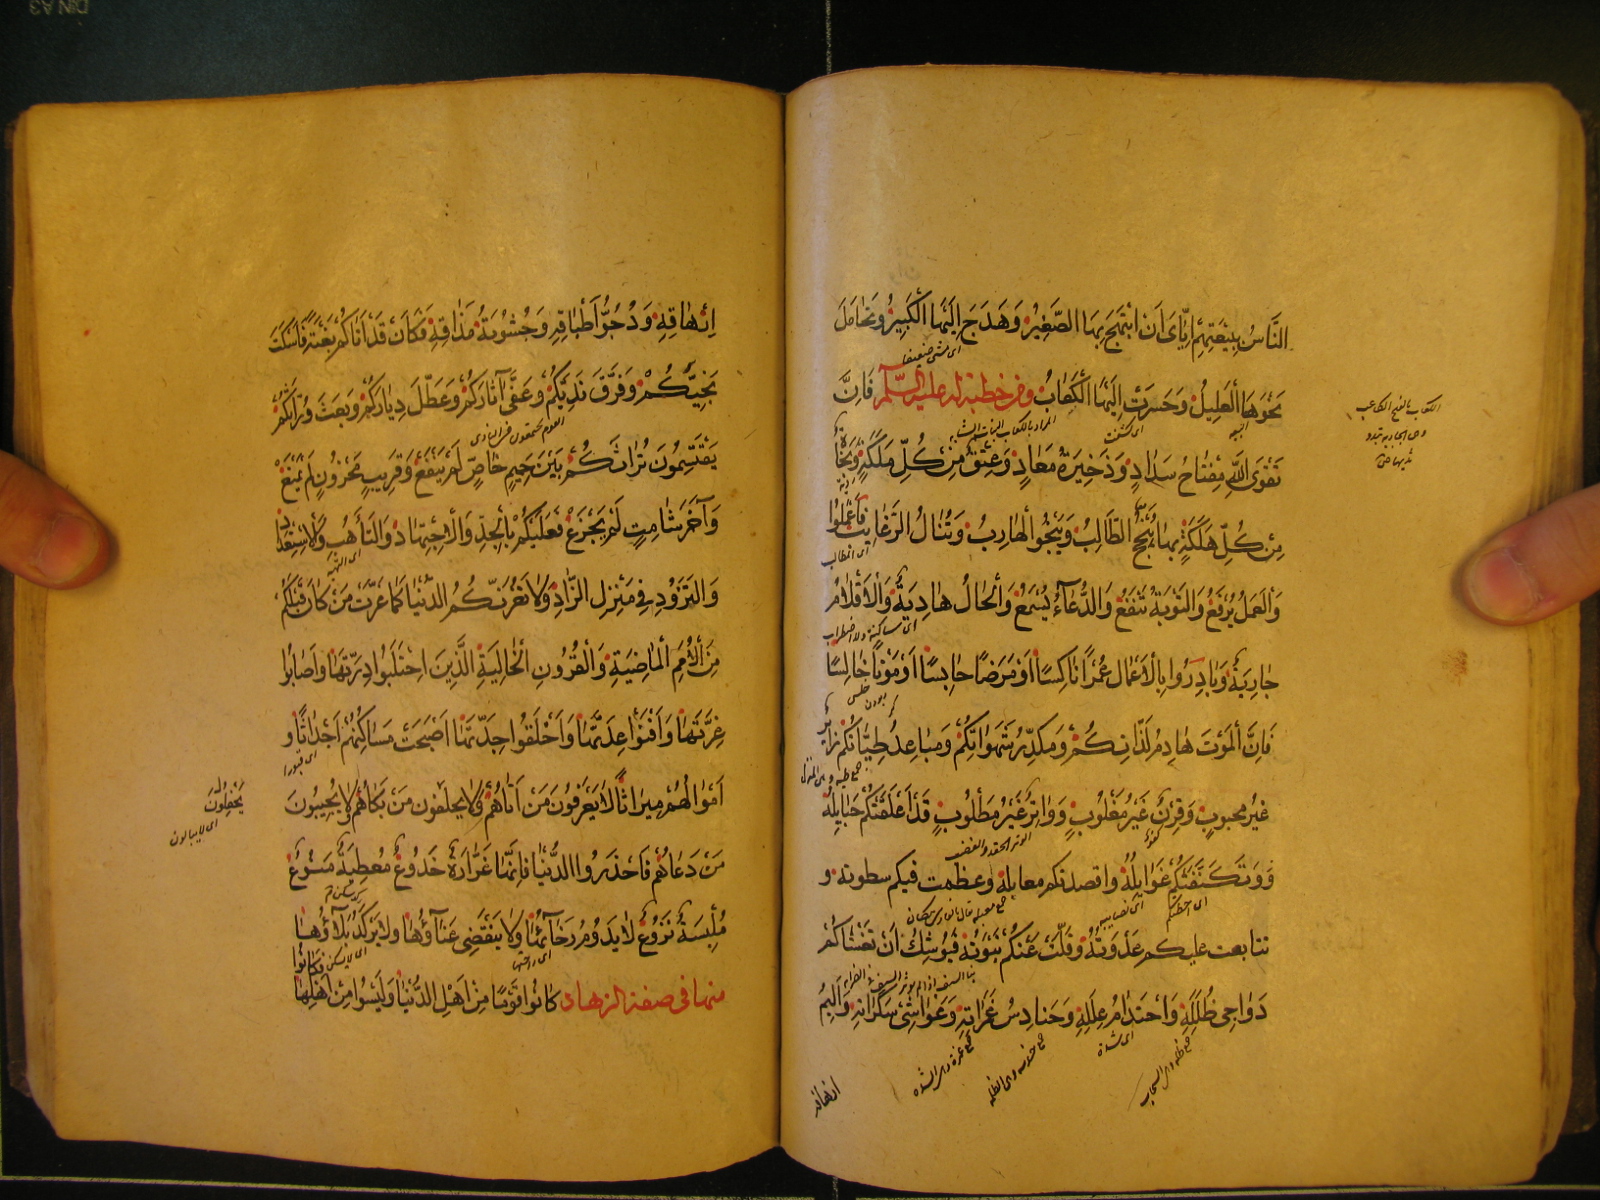 النَّاسُ بِبَيْعَتِهِمْ اِيَّايَ اَنِ ابْتَهَجَ بِهَا الصَّغِيرُ وَهَدَجَ اِلَيْهَا الْكَبِيرُ وَتَحَامَلَ
اى مشى ضعيفا
نَحْوَهَا الْعَلِيلُ وَحَسَرَتْ اِلَيْهَا الْكَعَابُ ومن خطبة له عليه السّلم فَاِنَّ
الكعاب بالفتح الكاعب
وهى الجارية تبدو
ثديها
اى كشفت
تَقْوَى اللّٰهِ مِفْتَاحُ سَدَادٍ وَذَخِيرَةُ مَعَادٍ وَعِتْقٌ مِنْ كُلِّ مَلَكَةٍ وَنَجَاةٌ
مِنْ كُلِّ هَلَكَةٍ بِهَا يُنْجِحُ الطَّالِبُ وَيَنْجُو الْهَارِبُ وَتُنَالُ الرَّغَائِبُ فَاعْمَلُوا
وَالْعَمَلُ يُرْفَعُ وَالتَّوْبَةُ تَنْفَعُ وَالدُّعَاءُ يُسْمَعُ وَالْحَالُ هَادِيَةٌ وَالْاَقْلَامُ
جَارِيَةٌ وَبَادِرُوا بِالْاَعْمَالِ عُمُرًا نَاكِسًا اَوْ مَرَضًا حَابِسًا اَوْ مَوْتًا خَالِسًا
فَاِنَّ الْمَوْتَ هَادِمُ لَذَّاتِكُمْ وَمُكَدِّرُ شَهَوَاتِكُمْ وَمُبَاعِدُ طِيَّاتِكُمْ زَائِرٌ
غَيْرُ محبوبٍ وَقِرْنٌ غَيْرُ مَغْلُوبٍ وَوَاتِرٌ غَيْرُ مَطْلُوبٍ قَدْ اَعْلَقَتْكُمْ حَبَائِلُهُ
وَتَكَنَّفَتْكُمْ غَوَائِلُهُ واقصدتكم معابله وعظمت فيكم سطوته و
تتابعت عليكم عَدْوَتُهُ وَقَلَّتْ عَنْكُمْ نَبْوَتُهُ فَيُوشِكُ اَنْ تَغْشَاكُمْ
دَوَاجِى ظُلَلِهِ وَاحْتِدَامُ عِلَلِهِ وَحَنَادِسُ غَمَرَاتِهِ وَغَوَاشِى سَكَرَاتِهِ وَاَلِيمُ
جمع ظله وهى السحاب
اى شدة
جمع حندسه وهى الظلمة
جمع غمرة وهى الشده
ارهاقه
اِرْهَاقِهِ وَدُجُوُّ اَطْبَاقِهِ وَجُشُوبَةُ مَذَاقِهِ فَكَاَنْ قَدْ اَتَاكُمْ بَغْتَةً فَاَسْكَتَ
نَجِيَّكُمْ وَفَرَّقَ نَدِيَّكُمْ وَعَفَّى آثَارَكُمْ وَعَطَّلَ دِيَارَكُمْ وَبَعَثَ وُرَّاثَكُمْ
يَقْتَسِمُونَ تُرَاثَكُمْ بَيْنَ حَمِيمٍ خَاصٍّ لَمْ يَنْفَعْ وَقَرِيبٍ مَحْزُونٍ لَمْ يَمْنَعْ
وَآخَرَ شَامِتٍ لَمْ يَجْزَعْ فَعَلَيْكُمْ بِالْجِدِّ وَالْاِجْتِهَادِ وَالتَّاَهُّبِ وَالْاِسْتِعْدَادِ
وَالتَّزَوُّدِ فِى مَنْزِلِ الزَّادِ وَلَا تَغُرَّنَّكُمُ الدُّنْيَا كَمَا غَرَّتْ مَنْ كَانَ قَبْلَكُمْ
مِنَ الْاُمَمِ الْمَاضِيَةِ وَالْقُرُونِ الْخَالِيَةِ الَّذِينَ احْتَلَبُوا دِرَّتَهَا وَاَصَابُوا
غِرَّتَهَا وَاَفْنَوْا عِدَّتَهَا وَاَخْلَقُوا جِدَّتَهَا اَصْبَحَتْ مَسَاكِنُهُمْ اَجْدَاثًا وَ
اى قبورا
اَمْوَالُهُمْ مِيرَاثًا لَا يَعْرِفُونَ مَنْ اَتَاهُمْ وَلَا يحلفون مَنْ بَكَاهُمْ وَلَا يُجِيبُونَ
يَحْفِلُونَ
اى لا يبالون
مَنْ دَعَاهُمْ فَاحْذَرُوا الدُّنْيَا فَاِنَّهَا غَرَّارَةٌ خَدُوعٌ مُعْطِيَةٌ مَنُوعٌ
مُلْبِسَةٌ نَزُوعٌ لَا يَدُومُ رَخَاؤُهَا وَلَا يَنْقَضِى عَنَاؤُهَا وَلَا يَرْكُدُ بَلَاؤُهَا
منها فى صفة الزهاد كَانُوا قَوْمًا مِنْ اَهْلِ الدُّنْيَا وَلَيْسُوا مِنْ اَهْلِهَا فَكَانُوا